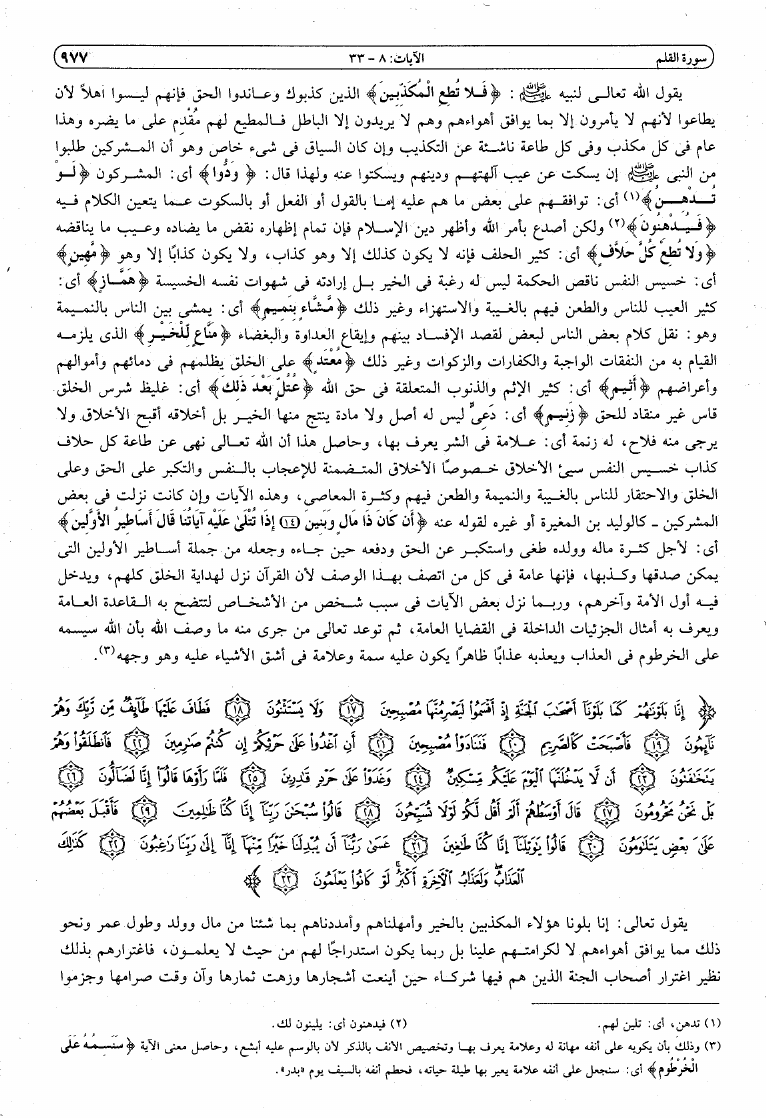 سورة القلم الآيات: ٨ - ٣٣ ٩٧٧
يقول الله تعالى لنبيه ﷺ : ﴿ فَلا تُطِعِ الْمُكَذِّبِينَ ﴾ الذين كذبوك وعاندوا الحق فإنهم ليسوا أهلاً لأن
يطاعوا لأنهم لا يأمرون إلا بما يوافق أهواءهم وهم لا يريدون إلا الباطل فالمطيع لهم مُقْدِم على ما يضره وهذا
عام فى كل مكذب وفى كل طاعة ناشئة عن التكذيب وإن كان السياق فى شىء خاص وهو أن المشركين طلبوا
من النبى ﷺ إن يسكت عن عيب آلهتهم ودينهم ويسكتوا عنه ولهذا قال: ﴿ وَدُّوا ﴾ أى: المشركون ﴿ لَوْ
تُدْهِنُ ﴾(١) أى: توافقهم على بعض ما هم عليه إما بالقول أو الفعل أو بالسكوت عما يتعين الكلام فيه
﴿ فَيُدْهِنُونَ ﴾(٢) ولكن أصدع بأمر الله وأظهر دين الإسلام فإن تمام إظهاره نقض ما يضاده وعيب ما يناقضه
﴿ وَلا تُطِعْ كُلَّ حَلاَّفٍ ﴾ أى: كثير الحلف فإنه لا يكون كذلك إلا وهو كذاب، ولا يكون كذابًا إلا وهو ﴿ مَّهِينٍ ﴾
أى: خسيس النفس ناقص الحكمة ليس له رغبة فى الخير بل إرادته فى شهوات نفسه الخسيسة ﴿ هَمَّازٍ ﴾ أى:
كثير العيب للناس والطعن فيهم بالغيبة والاستهزاء وغير ذلك ﴿ مَّشَّاءٍ بِنَمِيمٍ ﴾ أى: يمشى بين الناس بالنميمة
وهو: نقل كلام بعض الناس لبعض لقصد الإفساد بينهم وإيقاع العداوة والبغضاء ﴿ مَنَّاعٍ لِّلْخَيْرِ ﴾ الذى يلزمه
القيام به من النفقات الواجبة والكفارات والزكوات وغير ذلك ﴿ مُعْتَدٍ ﴾ على الخلق يظلمهم فى دمائهم وأموالهم
وأعراضهم ﴿ أَثِيمٍ ﴾ أى: كثير الإثم والذنوب المتعلقة فى حق الله ﴿ عُتُلٍّ بَعْدَ ذَلِكَ ﴾ أى: غليظ شرس الخلق
قاس غير منقاد للحق ﴿ زَنِيمٍ ﴾ أى: دَعِىٌّ ليس له أصل ولا مادة ينتج منها الخير بل أخلاقه أقبح الأخلاق ولا
يرجى منه فلاح، له زنمة أى: علامة فى الشر يعرف بها، وحاصل هذا أن الله تعالى نهى عن طاعة كل حلاف
كذاب خسيس النفس سيئ الأخلاق خصوصًا الأخلاق المتضمنة للإعجاب بالنفس والتكبر على الحق وعلى
الخلق والاحتقار للناس بالغيبة والنميمة والطعن فيهم وكثرة المعاصى، وهذه الآيات وإن كانت نزلت فى بعض
المشركين - كالوليد بن المغيرة أو غيره لقوله عنه ﴿ أَن كَانَ ذَا مَالٍ وَبَنِينَ (١٤) إِذَا تُتْلَىٰ عَلَيْهِ آيَاتُنَا قَالَ أَسَاطِيرُ الأَوَّلِينَ ﴾
أى: لأجل كثرة ماله وولده طغى واستكبر عن الحق ودفعه حين جاءه وجعله من جملة أساطير الأولين التى
يمكن صدقها وكذبها، فإنها عامة فى كل من اتصف بهذا الوصف لأن القرآن نزل لهداية الخلق كلهم، ويدخل
فيه أول الأمة وآخرهم، وربما نزل بعض الآيات فى سبب شخص من الأشخاص لتتضح به القاعدة العامة
ويعرف به أمثال الجزئيات الداخلة فى القضايا العامة، ثم توعد تعالى من جرى منه ما وصف الله بأن الله سيسمه
على الخرطوم فى العذاب ويعذبه عذابًا ظاهرًا يكون عليه سمة وعلامة فى أشق الأشياء عليه وهو وجهه(٣).
﴿ إِنَّا بَلَوْنَٰهُمْ كَمَا بَلَوْنَآ أَصْحَٰبَ ٱلْجَنَّةِ إِذْ أَقْسَمُوا۟ لَيَصْرِمُنَّهَا مُصْبِحِينَ (١٧) وَلَا يَسْتَثْنُونَ (١٨) فَطَافَ عَلَيْهَا طَآئِفٌ مِّن رَّبِّكَ وَهُمْ
نَآئِمُونَ (١٩) فَأَصْبَحَتْ كَٱلصَّرِيمِ (٢٠) فَتَنَادَوْا۟ مُصْبِحِينَ (٢١) أَنِ ٱغْدُوا۟ عَلَىٰ حَرْثِكُمْ إِن كُنتُمْ صَٰرِمِينَ (٢٢) فَٱنطَلَقُوا۟ وَهُمْ
يَتَخَٰفَتُونَ (٢٣) أَن لَّا يَدْخُلَنَّهَا ٱلْيَوْمَ عَلَيْكُم مِّسْكِينٌ (٢٤) وَغَدَوْا۟ عَلَىٰ حَرْدٍ قَٰدِرِينَ (٢٥) فَلَمَّا رَأَوْهَا قَالُوٓا۟ إِنَّا لَضَآلُّونَ (٢٦)
بَلْ نَحْنُ مَحْرُومُونَ (٢٧) قَالَ أَوْسَطُهُمْ أَلَمْ أَقُل لَّكُمْ لَوْلَا تُسَبِّحُونَ (٢٨) قَالُوا۟ سُبْحَٰنَ رَبِّنَآ إِنَّا كُنَّا ظَٰلِمِينَ (٢٩) فَأَقْبَلَ بَعْضُهُمْ
عَلَىٰ بَعْضٍ يَتَلَٰوَمُونَ (٣٠) قَالُوا۟ يَٰوَيْلَنَآ إِنَّا كُنَّا طَٰغِينَ (٣١) عَسَىٰ رَبُّنَآ أَن يُبْدِلَنَا خَيْرًا مِّنْهَآ إِنَّآ إِلَىٰ رَبِّنَا رَٰغِبُونَ (٣٢) كَذَٰلِكَ
ٱلْعَذَابُ وَلَعَذَابُ ٱلْأَخِرَةِ أَكْبَرُ لَوْ كَانُوا۟ يَعْلَمُونَ (٣٣) ﴾
يقول تعالى: إنا بلونا هؤلاء المكذبين بالخير وأمهلناهم وأمددناهم بما شئنا من مال وولد وطول عمر ونحو
ذلك مما يوافق أهواءهم لا لكرامتهم علينا بل ربما يكون استدراجًا لهم من حيث لا يعلمون، فاغترارهم بذلك
نظير اغترار أصحاب الجنة الذين هم فيها شركاء حين أينعت أشجارها وزهت ثمارها وآن وقت صرامها وجزموا
(١) تدهن، أى: تلين لهم. (٢) فيدهنون أى: يلينون لك.
(٣) وذلك بأن يكويه على أنفه مهانة له وعلامة يعرف بها وتخصيص الأنف بالذكر لأن بالوسم عليه أبشع، وحاصل معنى الآية ﴿ سَنَسِمُهُ عَلَى
الْخُرْطُومِ ﴾ أى: سنجعل على أنفه علامة يعير بها طيلة حياته، فحطم أنفه بالسيف يوم «بدر».